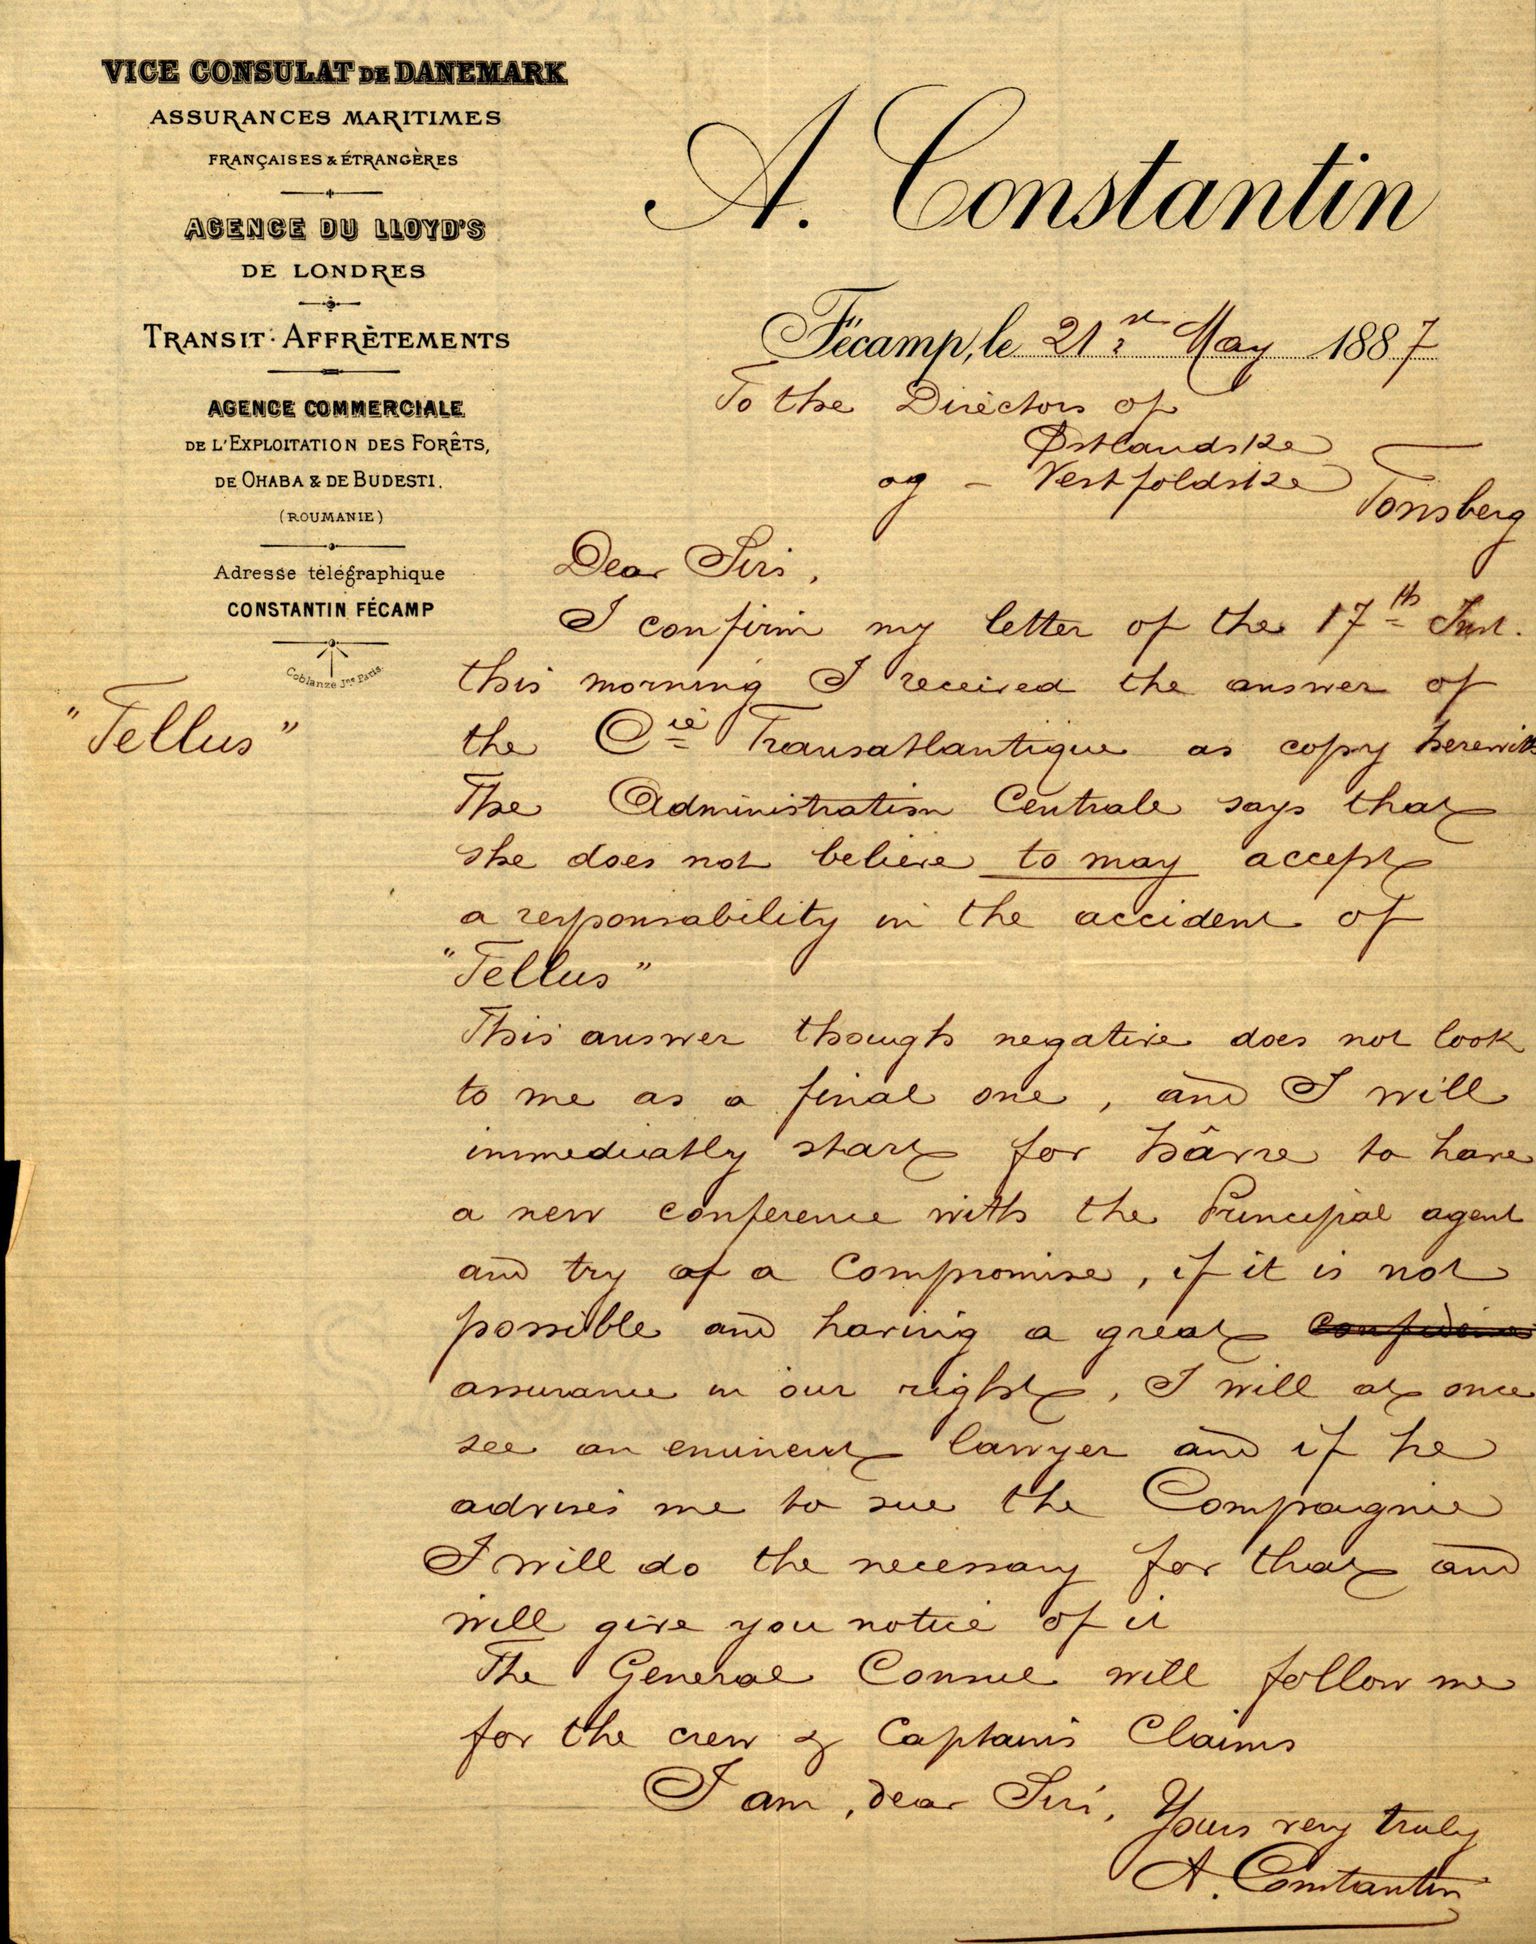 VICE CONSULAT DE DANEMARK
ASSURANCES MARITIMES
FRANÇAISES & ÉTRANGÈRES
AGENCE DU LLOYD'S
DE LONDRES
TRANSIT · AFFRÈTEMENTS
AGENCE COMMERCIALE
DE L'EXPLOITATION DES FORÊTS,
DE OHABA & DE BUDESTI.
(ROUMANIE)
Adresse télégraphique
CONSTANTIN FÉCAMP
Coblanze Jne Paris.
"Tellus"
A. Constantin
Fécamp, le 21st May 1887
To the Directors of
Østlandske
og - Vestfoldske Tonsberg
Dear Sirs,
I confirm my letter of the 17th Inst.
this morning I received the answer of
the Cie Transatlantique as copy herewith
The Administration Centrale says that
she does not believe to may accept
a responsability in the accident of
"Tellus"
This answer though negative does not look
to me as a final one, and I will
immediatly start for hâvre to have
a new conference with the Principal agent
and try of a Compromise, if it is not
possible and having a great confidence
assurance in our right, I will at once
see an eminent lawyer and if he
advises me to sue the Compagnie
I will do the necessary for that and
will give you notice of it
The General Consul will follow me
for the crew & Captain's Claims
I am, dear Sirs, Yours very truly
A. Constantin